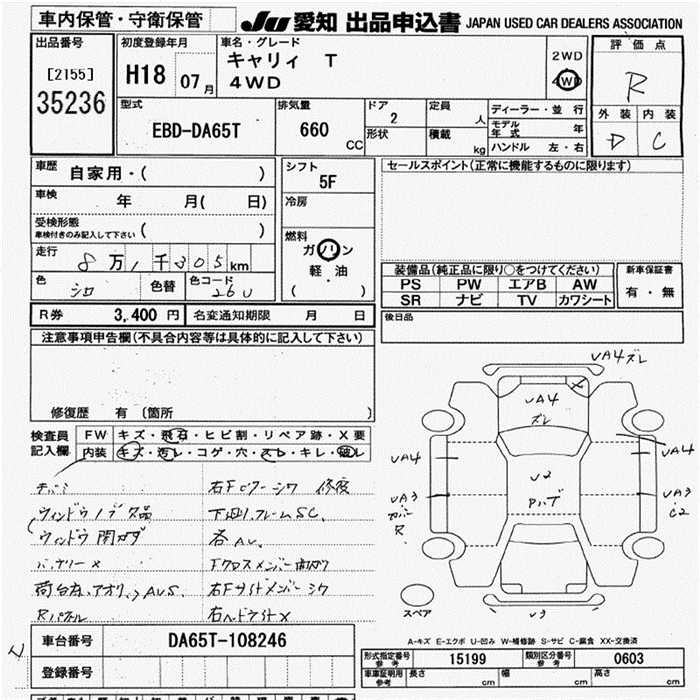 車内保管・守衛保管
JU 愛知 出品申込書 JAPAN USED CAR DEALERS ASSOCIATION
出品番号
[2155]
35236
初度登録年月
H18 07月
車名・グレード
キャリィ T
4WD
2WD
4WD
評価点
R
外装 内装
D C
型式
EBD-DA65T
排気量
660 CC
ドア
2
形状
定員
人
積載
kg
ディーラー・並行
モデル年式 年
ハンドル 左・右
車歴
自家用・( )
車検
年 月( 日)
受検形態
車検付きのみ記入して下さい ( )
走行
8万1千305km
色
シロ
色替
色コード
26U
シフト
5F
冷房
燃料
ガソリン
軽・油
( )
R券 3,400円 名変通知期限 月 日
セールスポイント(正常に機能するものに限ります)
装備品(純正品に限り○をつけてください)
PS PW エアB AW
SR ナビ TV カワシート
新車保証書
有・無
後日品
注意事項申告欄(不具合内容等は具体的に記入して下さい)
修復歴 有 (箇所 )
検査員記入欄
FW キズ・飛石・ヒビ割・リペア跡・X要
内装 キズ・汚レ・コゲ・穴・スレ・キレ・破レ
右Fピラーシワ 修復
下廻リフレームSC,
ウィンドウ開閉ガタ
各AU,
バッテリーX
Fクロスメンバー曲ガリ
荷台左、アオリ、AUS,
右Fサイドメンバーシワ
Rパネル
右ヘッドライトX
UA4ズレ
UA4
ズレ
X
UA4
UA4
U2
Pハゲ
UA3
カバー
R.
UA3
C2
U3
スペア
A-キズ E-エクボ U-凹み W-補修跡 S-サビ C-腐食 XX-交換済
車台番号 DA65T-108246
登録番号
形式指定番号 参考 15199 類別区分番号 参考 0603
車庫証明用 参考 長さ cm 幅 cm 高さ cm